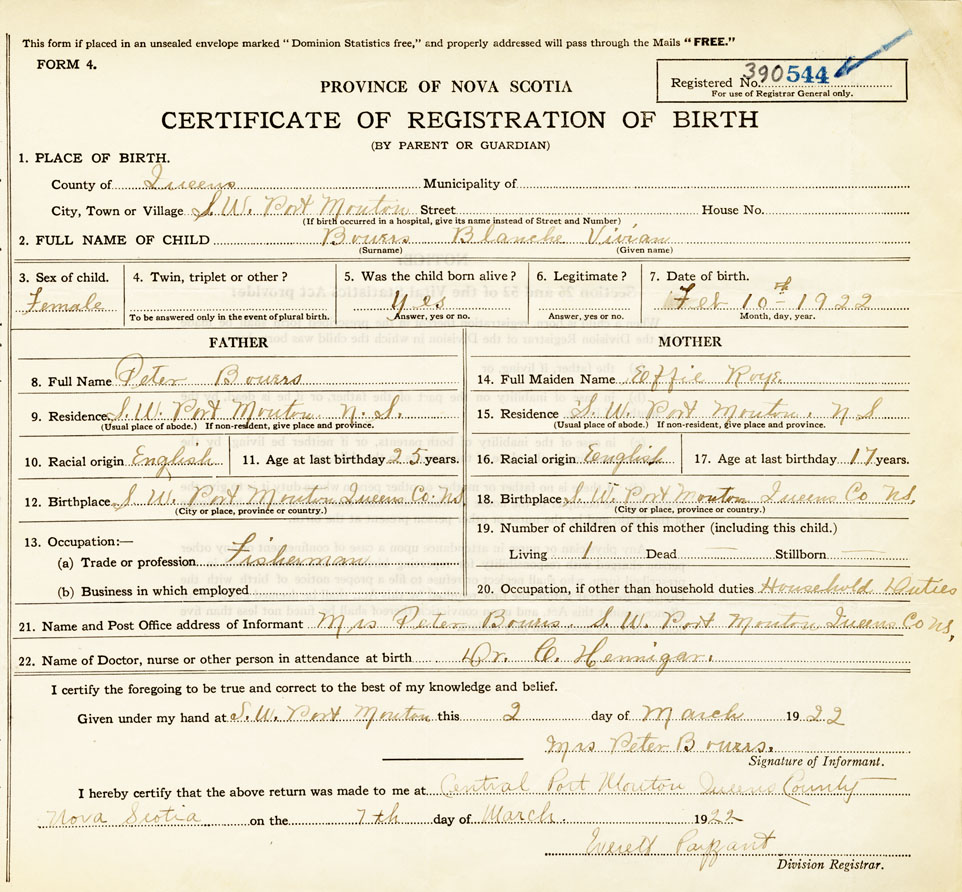 This form if placed in an unsealed envelope marked "Dominion Statistics free," and properly addressed will pass through the Mails "FREE."
FORM 4.
Registered No. 390544
For use of Registrar General only.
PROVINCE OF NOVA SCOTIA
CERTIFICATE OF REGISTRATION OF BIRTH
(BY PARENT OR GUARDIAN)
1. PLACE OF BIRTH.
County of Queens Municipality of
City, Town or Village S. W. Port Mouton Street House No.
(If birth occurred in a hospital, give its name instead of Street and Number)
2. FULL NAME OF CHILD Bowers Blanche Vivian
(Surname) (Given name)
3. Sex of child. 4. Twin, triplet or other? 5. Was the child born alive? 6. Legitimate? 7. Date of birth.
Female Yes Feb 10th 1922
To be answered only in the event of plural birth. Answer, yes or no. Answer, yes or no. Month, day, year.
FATHER MOTHER
8. Full Name Peter Bowers 14. Full Maiden Name Effie Roye
9. Residence S. W. Port Mouton. N. S. 15. Residence S. W. Port Mouton. N S
(Usual place of abode.) If non-resident, give place and province. (Usual place of abode.) If non-resident, give place and province.
10. Racial origin English 11. Age at last birthday 25 years. 16. Racial origin English 17. Age at last birthday 17 years.
12. Birthplace S. W. Port Mouton Queens Co NS 18. Birthplace S. W. Port Mouton Queens Co NS,
(City or place, province or country.) (City or place, province or country.)
13. Occupation:— 19. Number of children of this mother (including this child.)
(a) Trade or profession Fisherman Living 1 Dead — Stillborn —
(b) Business in which employed 20. Occupation, if other than household duties Household Duties
21. Name and Post Office address of Informant Mrs Peter Bowers. S. W. Port Mouton Queens Co NS,
22. Name of Doctor, nurse or other person in attendance at birth Dr. C. Hennigar.
I certify the foregoing to be true and correct to the best of my knowledge and belief.
Given under my hand at S. W. Port Mouton this 2 day of March 1922
Mrs Peter Bowers.
Signature of Informant.
I hereby certify that the above return was made to me at Central Port Mouton Queens County
Nova Scotia on the 7th day of March. 1922
Everett
Division Registrar.